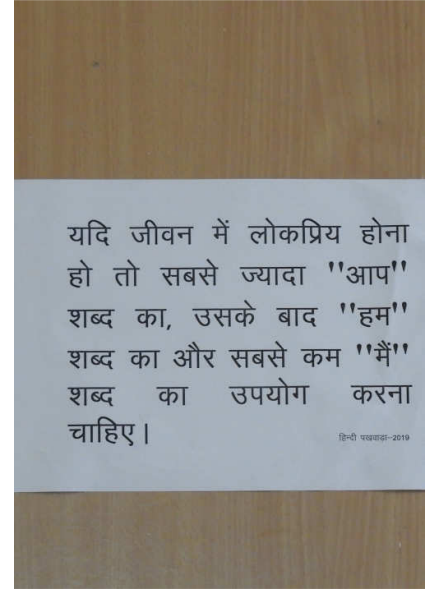 यदि जीवन में लोकप्रिय होना
हो तो सबसे ज्यादा ''आप''
शब्द का, उसके बाद ''हम''
शब्द का और सबसे कम ''मैं''
शब्द का उपयोग करना
चाहिए।
हिन्दी पखवाड़ा–2019